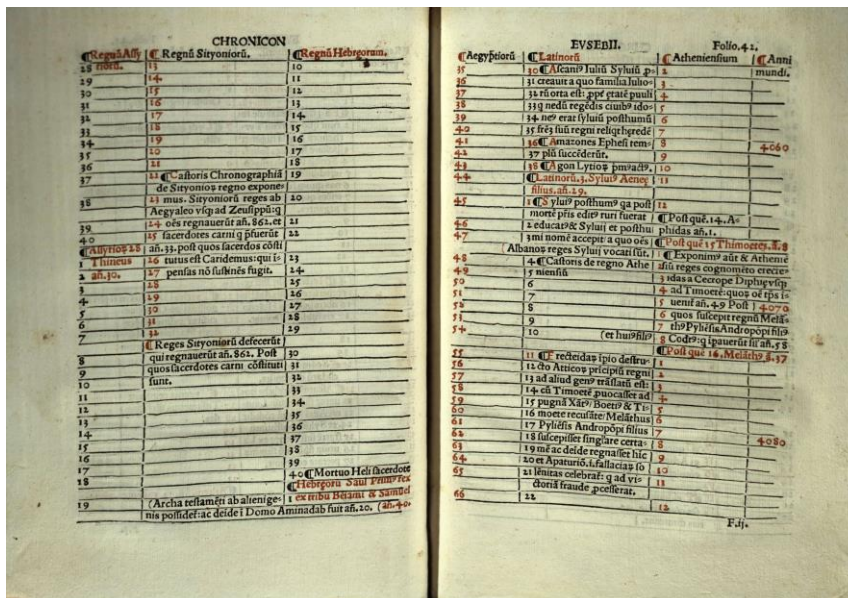 CHRONICON
¶Regnũ Assy ¶ Regnũ Sityoniorũ. ¶Regnũ Hębręorum.
28 riorũ. 13 10
29 14 11
30 15 12
31 16 13
32 17 14
33 18 15
33 19 16
34 20 17
35 21 18
36 22 ¶Castoris Chronographiã 19
37 de Sityonioꝝ regno expone-
38 23 mus. Sityoniorũ reges ab 20
Aegyaleo vsqꝫ ad Zeusippũ: q
39 24 oẽs regnauerũt añ. 862. et 21
40 25 sacerdotes carni q pfuerũt 22
¶Assyrioꝝ 28 añ. 33. post quos sacerdos cõsti
1 Thineus 26 tutus est Caridemus: qui i- 23
2 añ. 30. 27 pensas nõ sustinẽs fugit. 24
3 28 25
4 29 26
5 30 27
6 31 28
7 32 29
¶Reges Sityoniorũ defecerũt
8 qui regnauerũt añ. 862. Post 30
9 quos sacerdotes carni cõstituti 31
10 sunt. 32
11 33
12 34
13 35
14 36
15 37
16 38
17 39
18 40 ¶Mortuo Heli sacerdote
¶Hebręorũ Saul Primꝰ rex
19 (Archa testamẽti ab alienige- 1 ex tribu Beiami & Samuel
nis possidet: ac deide i Domo Aminadab fuit añ. 20. (añ. 40.
EVSEBII. Folio. 42.
¶Aegyptiorũ ¶Latinorũ ¶Atheniensium ¶Anni
mundi.
35 30 ¶Ascaniꝰ Iuliũ Syluiũ p- 2
36 31 creauit a quo familia Iulio- 3
37 32 rũ orta est: 4
38 33 q nedũ regẽdis ciuibꝰ ido- 5
39 34 neꝰ erat syluiũ posthumũ 6
40 35 frẽs suũ regni reliqt heredẽ 7
41 36 ¶Amazones Ephesi tem- 8 4060
42 37 plũ succẽderũt. 9
43 38 ¶Agon Lytioꝝ 10
44 ¶Latinorũ. 3. Syluiꝰ Aeneę 11
filius. añ. 29.
45 1 ¶Syluiꝰ posthumꝰ qa post 12
mortẽ pris editꝰ ruri fuerat ¶Post quẽ. 14. A-
46 2 educatꝰ & Sylui et posthu phidas añ. 1.
47 3 mi nomẽ accepit: a quo oẽs ¶Post quẽ 15 Thimoetes. ã. 8
(Albanoꝝ reges Syluij vocati sũt. ¶Exponimꝰ aũt & Atheniẽ
48 4 ¶Castoris de regno Athe siũ reges cognomẽto erectie-
49 5 niensiũ 3 idas a Cecrope Diphię vsqꝫ
50 6 4 ad Timoetẽ: quoꝝ oẽ tps i-
51 7 5 uenit añ. 49 Post 4070
52 8 6 quos suscepit regnũ Melã-
53 9 7 thꝰ Pyliẽsis Andropõpi filiꝰ
54 10 (et huiꝰ filiꝰ 8 Codrꝰ: q ipauerũt sil añ. 58
¶Post quẽ 16. Melãthꝰ ã. 37
55 11 ¶Erecteidaꝝ ipio destru- 1
56 12 cto Atticoꝝ pricipiũ regni 2
57 13 ad aliud genꝰ trãslatũ est: 3
58 14 cũ Timoetẽ puocasset ad 4
59 15 pugnã Xãtꝰ/ Boetiꝰ & Ti- 5
60 16 moete recusãte/ Melãthus 6
61 17 Pyliẽsis Andropõpi filius 7
62 18 suscepisset singlare certa- 8 4080
63 19 mẽ ac deide regnasset hic 9
64 20 et Apaturiõ. i. fallaciaꝝ so 10
65 21 lẽnitas celebrat: q ad vi- 11
ctoriã fraude pcesserat.
66 22 12
F. ij.